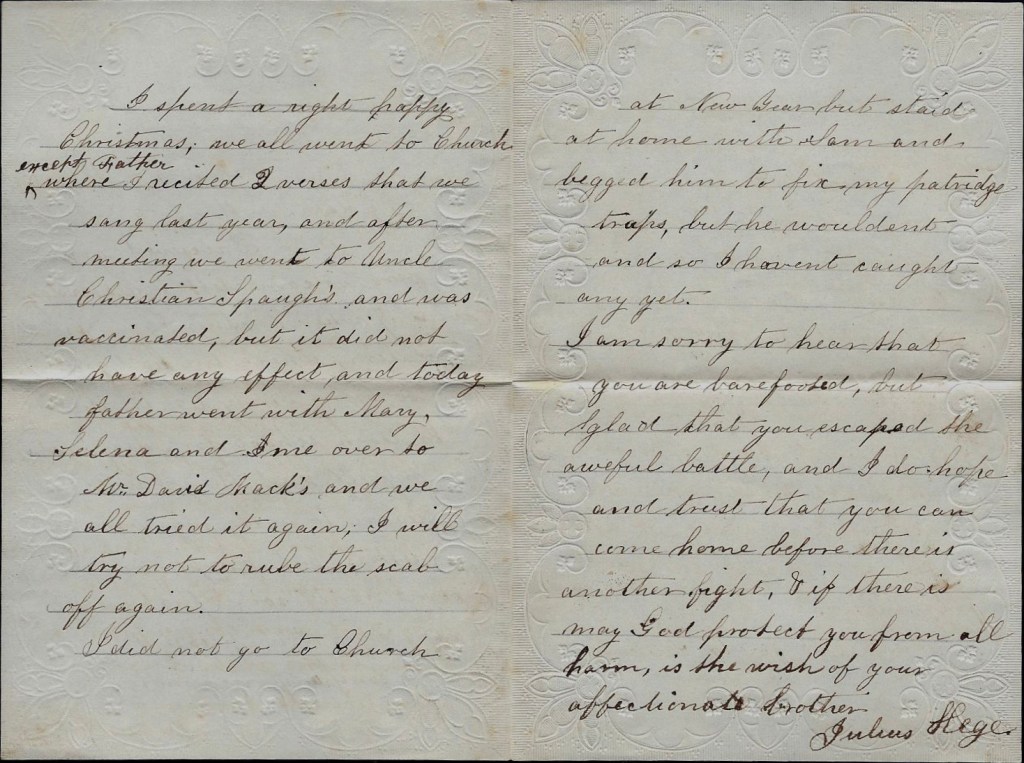 I spent a right happy
Christmas; we all went to Church
except Father
where I recited 2 verses that we
sang last year, and after
meeting we went to Uncle
Christian Spaugh's and was
vaccinated, but it did not
have any effect, and today
father went with Mary,
Selena and I me over to
Mr. David Mack's and we
all tried it again; I will
try not to rube the scab
off again.
I did not go to Church
at New Year but staid
at home with Sam and
begged him to fix my patridge
traps, but he wouldent
and so I havent caught
any yet.
I am sorry to hear that
you are barefooted, but
glad that you escaped the
aweful battle, and I do hope
and trust that you can
come home before there is
another fight, & if there is
may God protect you from all
harm, is the wish of your
affectionate brother
Julius Hege.